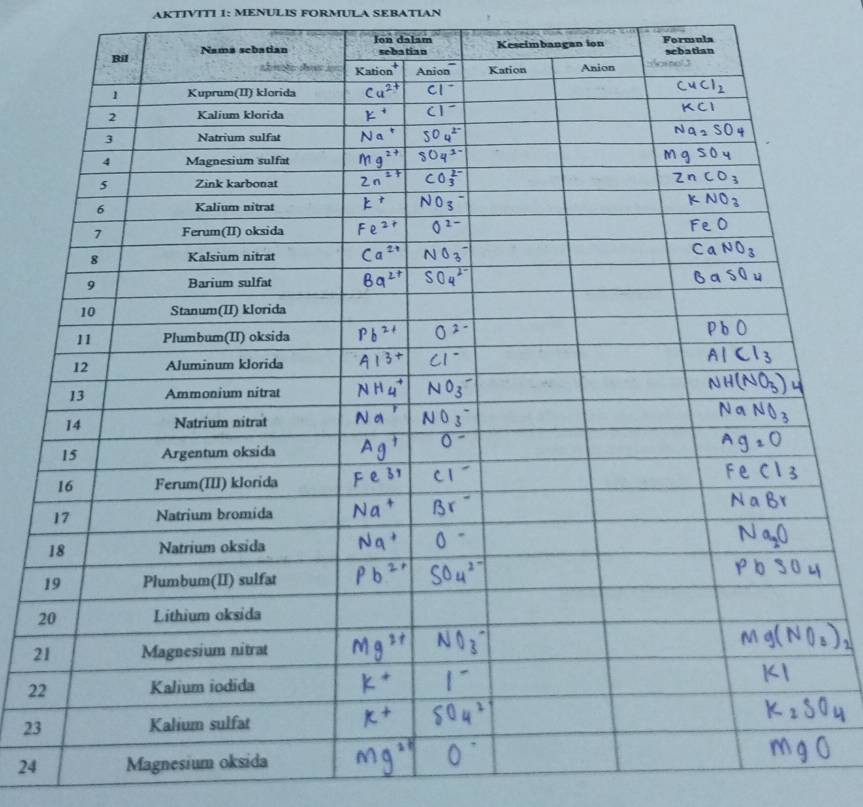 AKTIVITI 1: MENULIS FORMULA SEBATIAN
Bil Nama sebatian Ion dalam sebatian Keseimbangan ion Formula sebatian
Kation⁺ Anion⁻ Kation Anion
1 Kuprum(II) klorida Cu²⁺ Cl⁻ CuCl₂
2 Kalium klorida K⁺ Cl⁻ KCl
3 Natrium sulfat Na⁺ SO₄²⁻ Na₂SO₄
4 Magnesium sulfat Mg²⁺ SO₄²⁻ MgSO₄
5 Zink karbonat Zn²⁺ CO₃²⁻ ZnCO₃
6 Kalium nitrat K⁺ NO₃⁻ KNO₃
7 Ferum(II) oksida Fe²⁺ O²⁻ FeO
8 Kalsium nitrat Ca²⁺ NO₃⁻ CaNO₃
9 Barium sulfat Ba²⁺ SO₄²⁻ BaSO₄
10 Stanum(II) klorida
11 Plumbum(II) oksida Pb²⁺ O²⁻ PbO
12 Aluminum klorida Al³⁺ Cl⁻ AlCl₃
13 Ammonium nitrat NH₄⁺ NO₃⁻ NH(NO₃)₄
14 Natrium nitrat Na⁺ NO₃⁻ NaNO₃
15 Argentum oksida Ag⁺ O⁻ Ag₂O
16 Ferum(III) klorida Fe³⁺ Cl⁻ FeCl₃
17 Natrium bromida Na⁺ Br⁻ NaBr
18 Natrium oksida Na⁺ O⁻ Na₂O
19 Plumbum(II) sulfat Pb²⁺ SO₄²⁻ PbSO₄
20 Lithium oksida
21 Magnesium nitrat Mg²⁺ NO₃⁻ Mg(NO₃)₂
22 Kalium iodida K⁺ I⁻ KI
23 Kalium sulfat K⁺ SO₄²⁻ K₂SO₄
24 Magnesium oksida Mg²⁺ O⁻ MgO